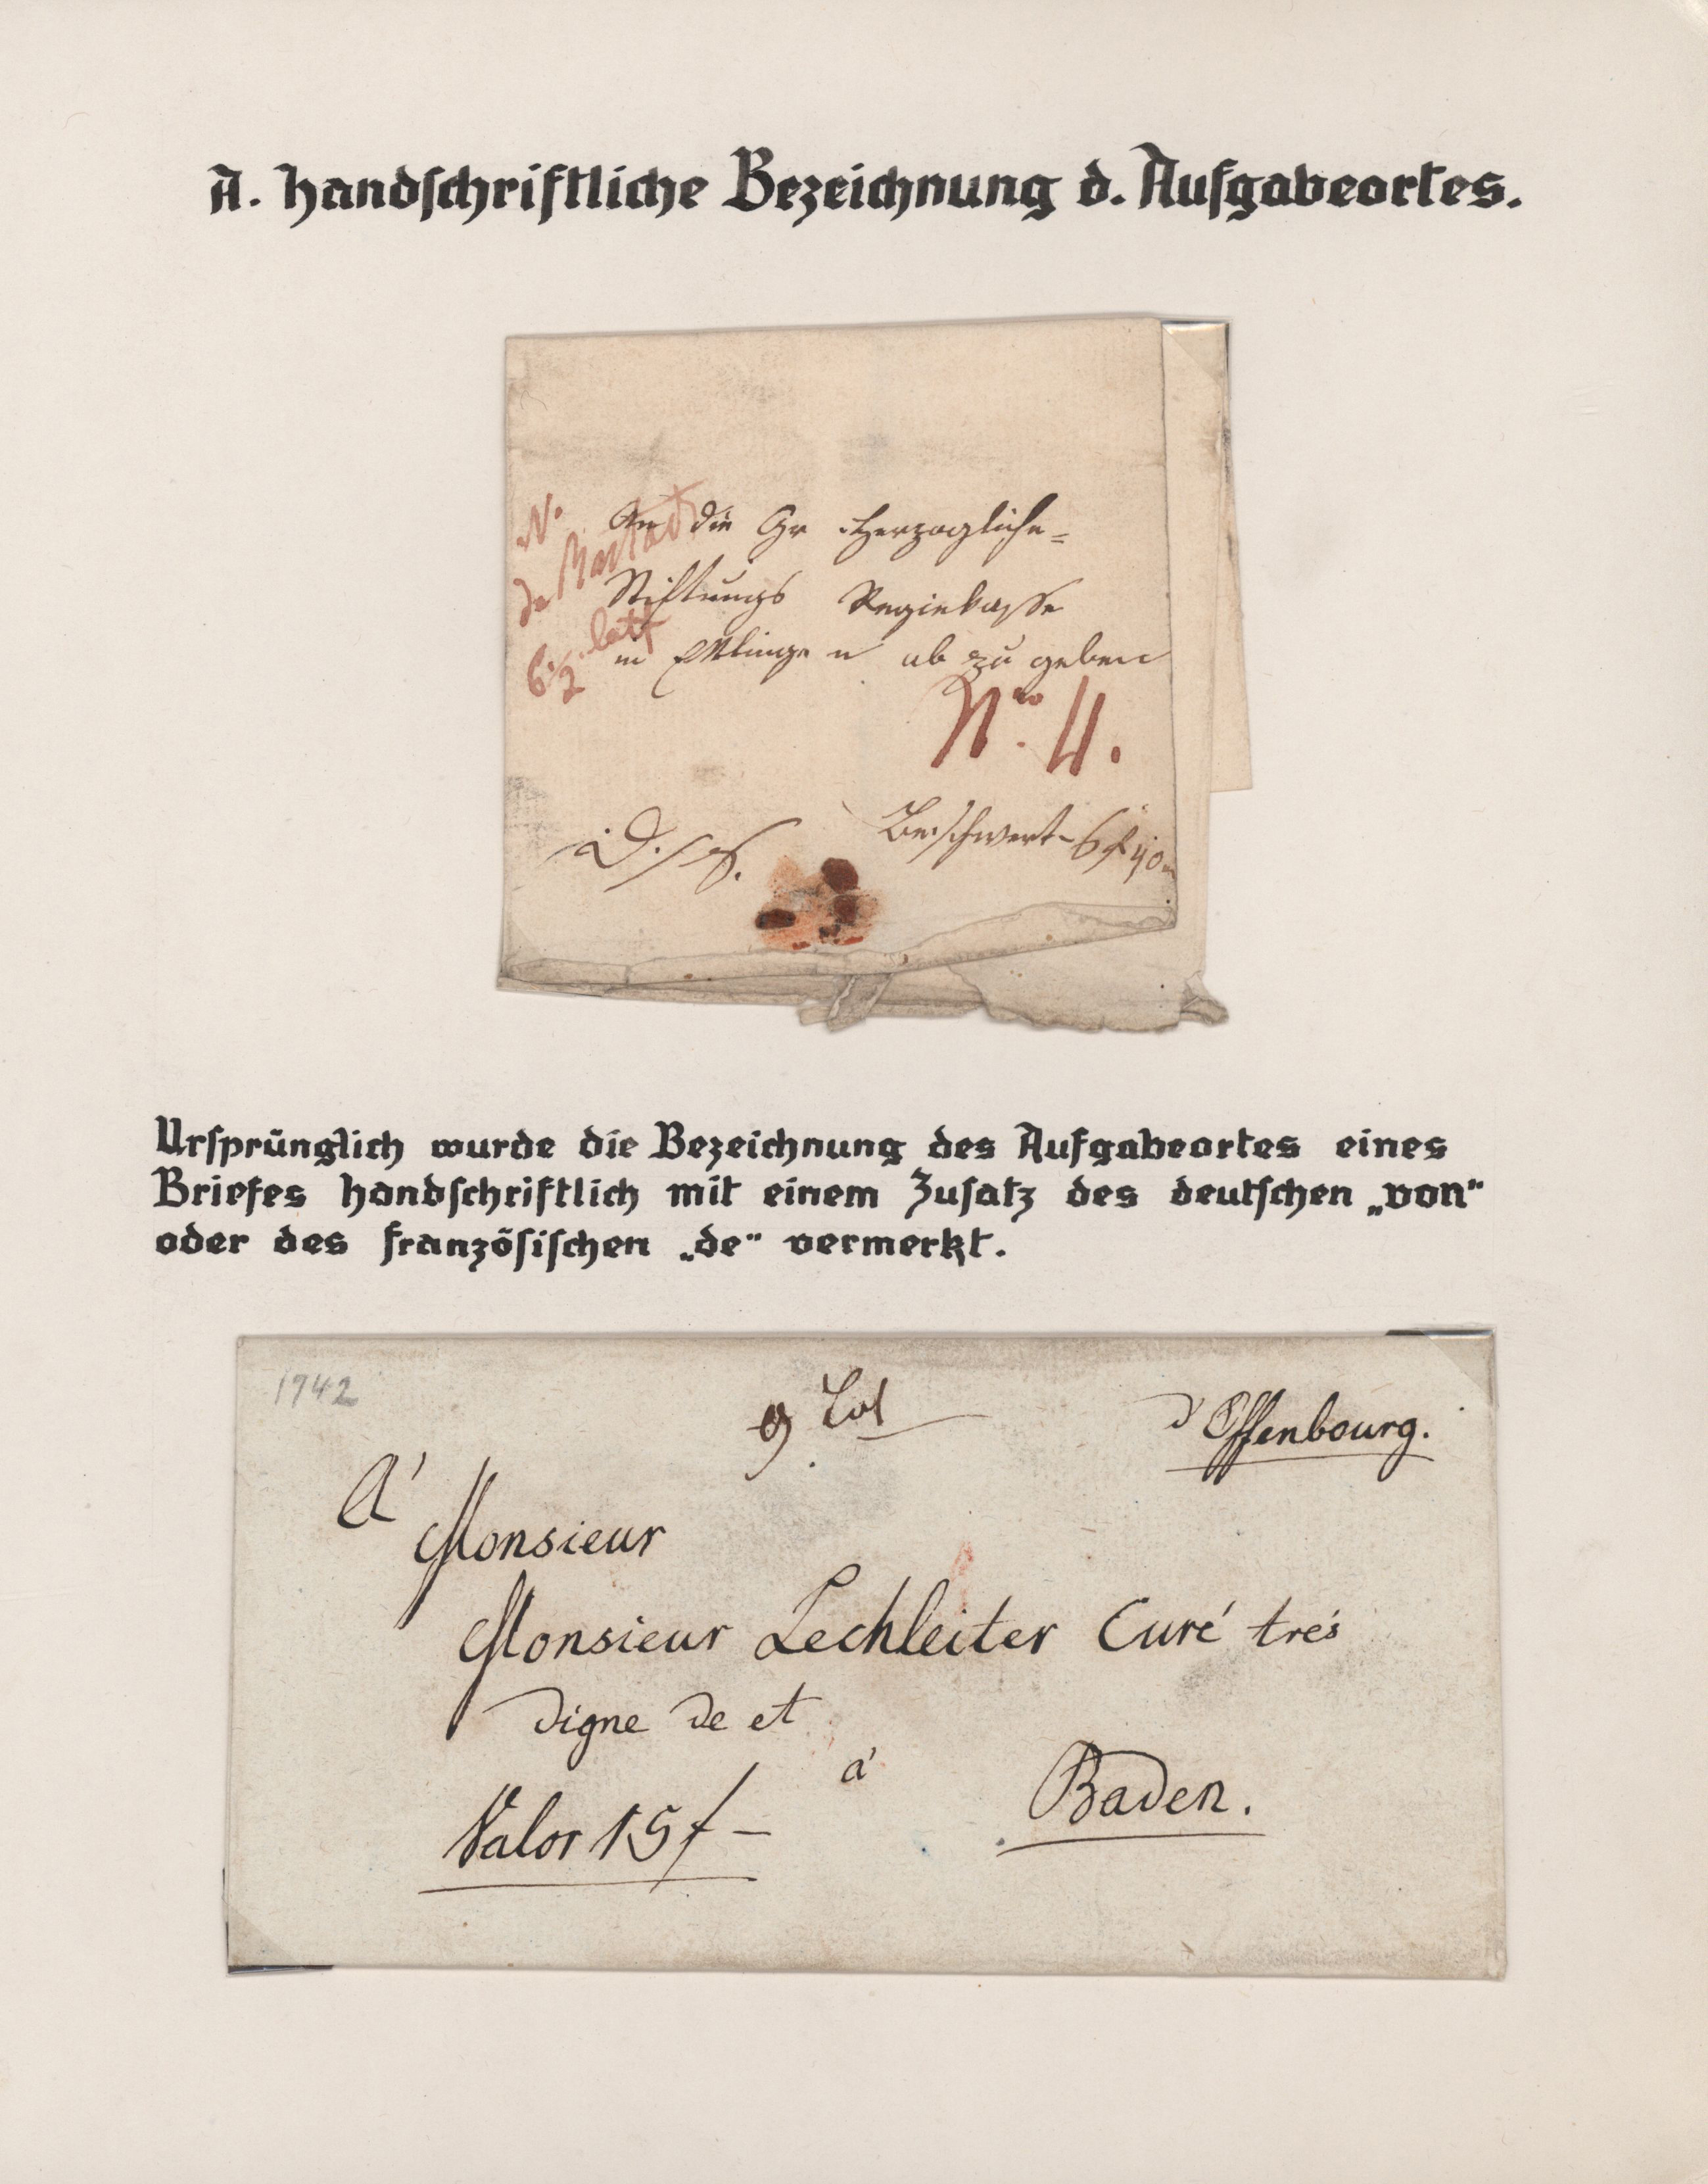 A. Handschriftliche Bezeichnung d. Aufgabeortes.
N°
de Rastatt
6 1/2 lott
An die Gr Herzogliche=
Stiftungs Regiekasse
in Ettlingen ab zu geben
N° 4.
D. S.
Beschwert 6 f 40
Ursprünglich wurde die Bezeichnung des Aufgabeortes eines
Briefes handschriftlich mit einem Zusatz des deutschen „von"
oder des französischen „de" vermerkt.
1742
9 Lot
d'Offenbourg.
A'
Monsieur
Monsieur Lechleiter Curé trés
digne de et
á
Baden.
Valor 15 f —